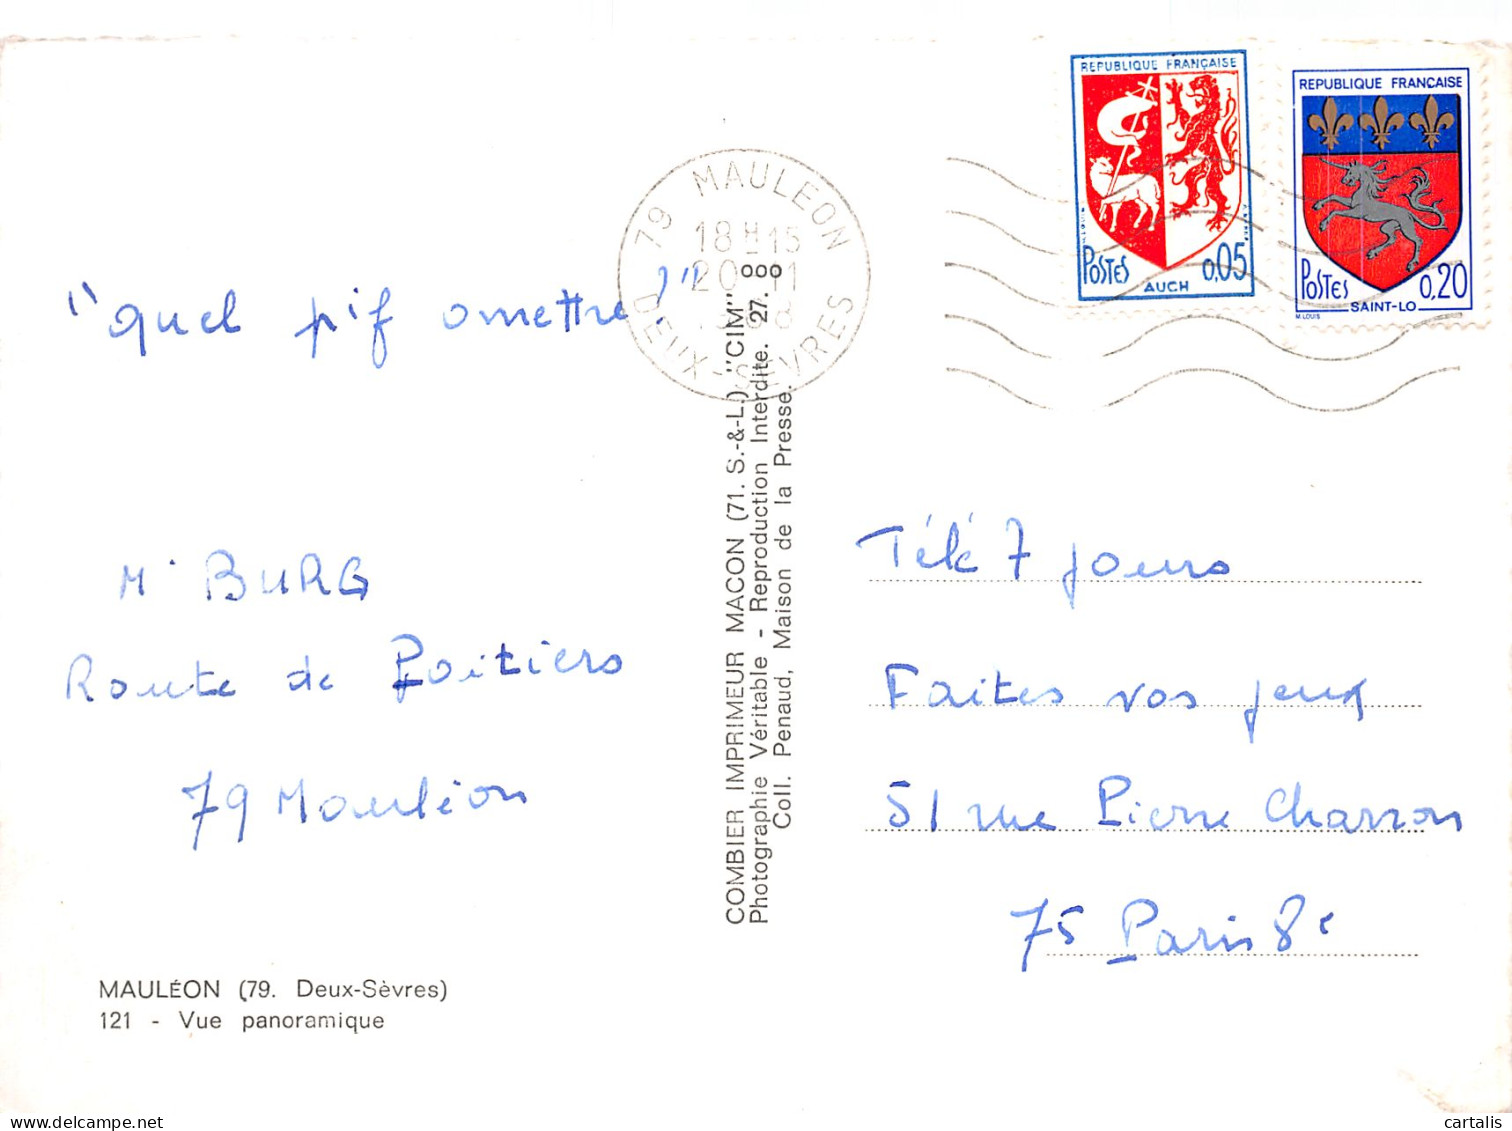 REPUBLIQUE FRANÇAISE
POSTES 0,05
AUCH
REPUBLIQUE FRANÇAISE
POSTES 0,20
SAINT-LO
M. LOUIS
79 MAULEON
18H15
20-11
DEUX-SEVRES
"quel pif omettre?"
M. BURG
Route de Poitiers
79 Mauléon
MAULÉON (79. Deux-Sèvres)
121 - Vue panoramique
COMBIER IMPRIMEUR MACON (71. S.-&-L.) "CIM"
Photographie Véritable - Reproduction Interdite. 27.
Coll. Penaud, Maison de la Presse.
Télé 7 jours
Faites vos jeux
51 rue Pierre Charron
75 Paris 8e
cartalis